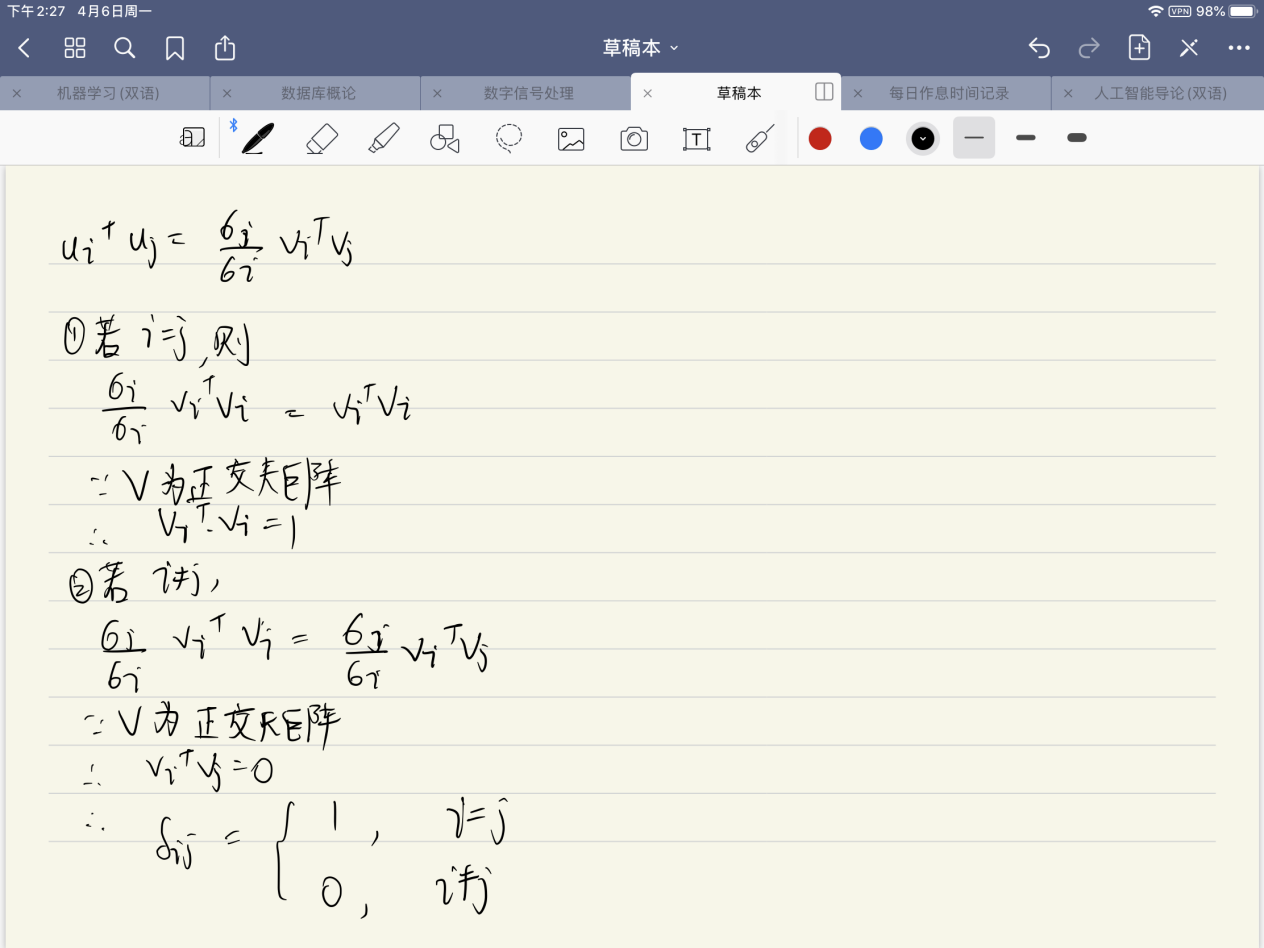 下午2:27 4月6日周一
VPN 98%
草稿本
机器学习(双语) 数据库概论 数字信号处理 草稿本 每日作息时间记录 人工智能导论(双语)
uᵢᵀ uⱼ = σⱼ/σᵢ vᵢᵀvⱼ
①若 i=j,则
σᵢ/σᵢ vᵢᵀvᵢ = vᵢᵀvᵢ
∵ V为正交矩阵
∴ vᵢᵀ·vᵢ=1
②若 i≠j,
σⱼ/σᵢ vᵢᵀ vⱼ = σⱼ/σᵢ vᵢᵀvⱼ
∵ V为正交矩阵
∴ vᵢᵀvⱼ=0
∴ δᵢⱼ = { 1, i=j
0, i≠j